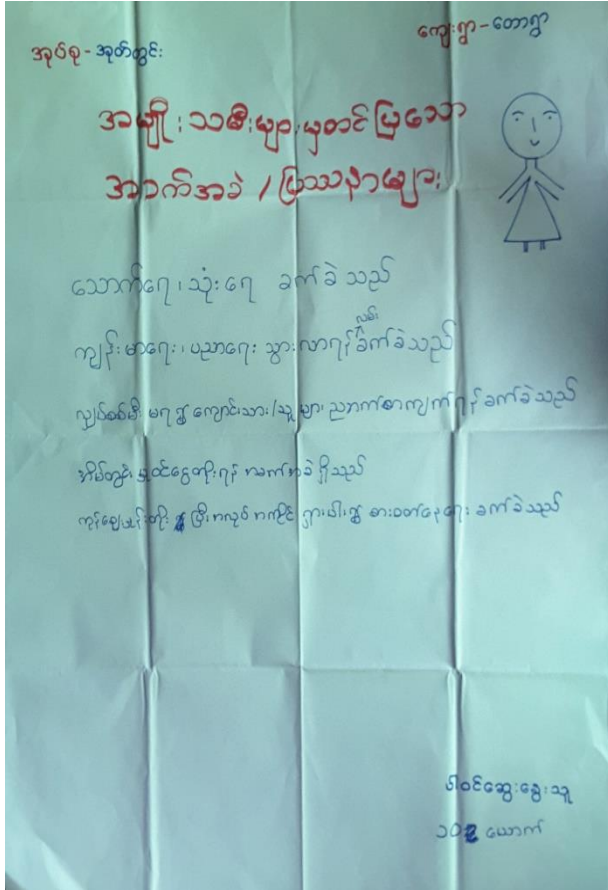 ကျေးရွာ-တောရွာ
အုပ်စု-အုတ်တွင်း
အမျိုးသမီးများမှတင်ပြသော
အခက်အခဲ / ပြဿနာများ
သောက်ရေ၊ သုံးရေ ခက်ခဲသည်
ကျန်းမာရေး၊ ပညာရေး သွားလာရန် လမ်းခက်ခဲသည်
လျှပ်စစ်မီး မရ၍ ကျောင်းသား/သူများ ညဘက်စာကျက်ရန် ခက်ခဲသည်
အိမ်တွင်းမှုဝင်ငွေတိုးရန် အခက်အခဲရှိသည်
ကုန်ဈေးနှုန်းတိုး၍ ပြီးအလုပ်အကိုင် ရှားပါး၍ စားဝတ်နေရေး ခက်ခဲသည်
ပါဝင်ဆွေးနွေးသူ
ယောက်